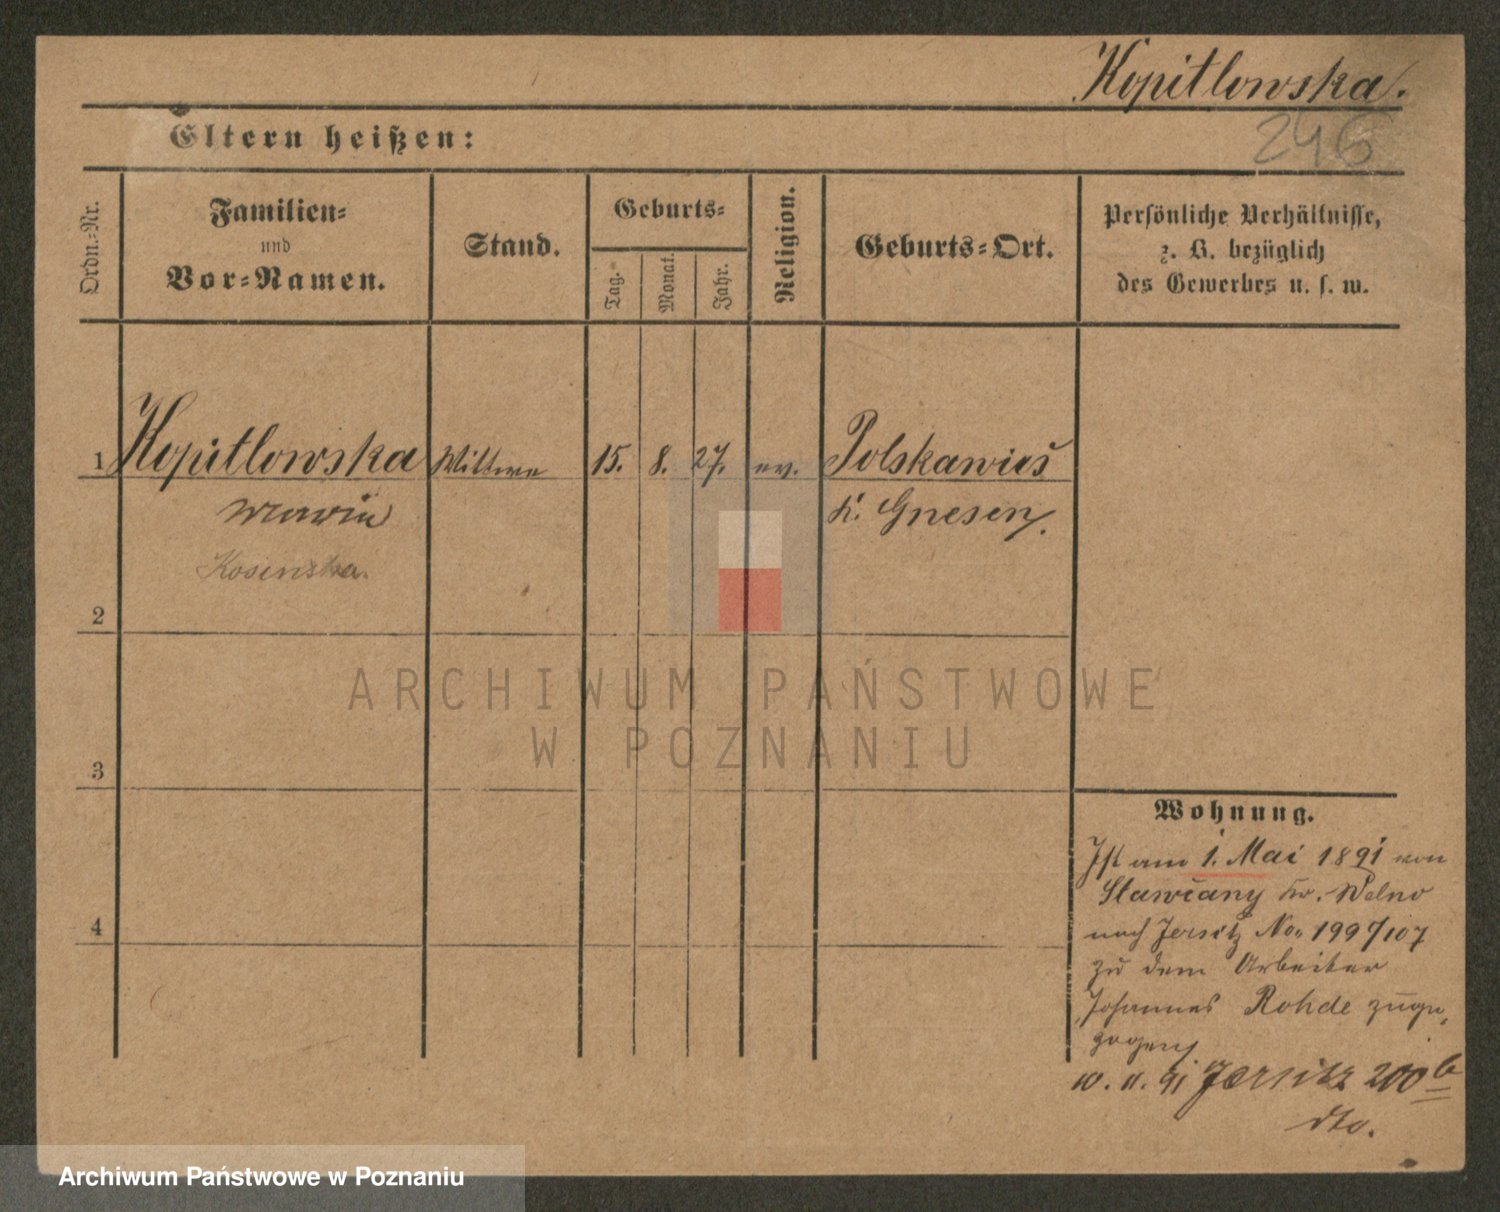 Kopitlowska.
246
Eltern heißen:
Ordn.-Nr.
Familien-
und
Vor-Namen.
Stand.
Geburts-
Tag.
Monat.
Jahr.
Religion.
Geburts-Ort.
Persönliche Verhältnisse,
z. B. bezüglich
des Gewerbes u. s. w.
1 Kopitlowska Wittwe 15. 8. 27. ev. Polskawieś
Marie k. Gnesen.
Kosinska.
2
ARCHIWUM PAŃSTWOWE
W POZNANIU
3
Wohnung.
Ist am 1. Mai 1891 von
Kr.
4
nach Jersitz No. 199/107
zu dem Arbeiter
Johannes Rohde zuge-
zogen
10. 11. 91 Jersitz 200 b
dto.
Archiwum Państwowe w Poznaniu